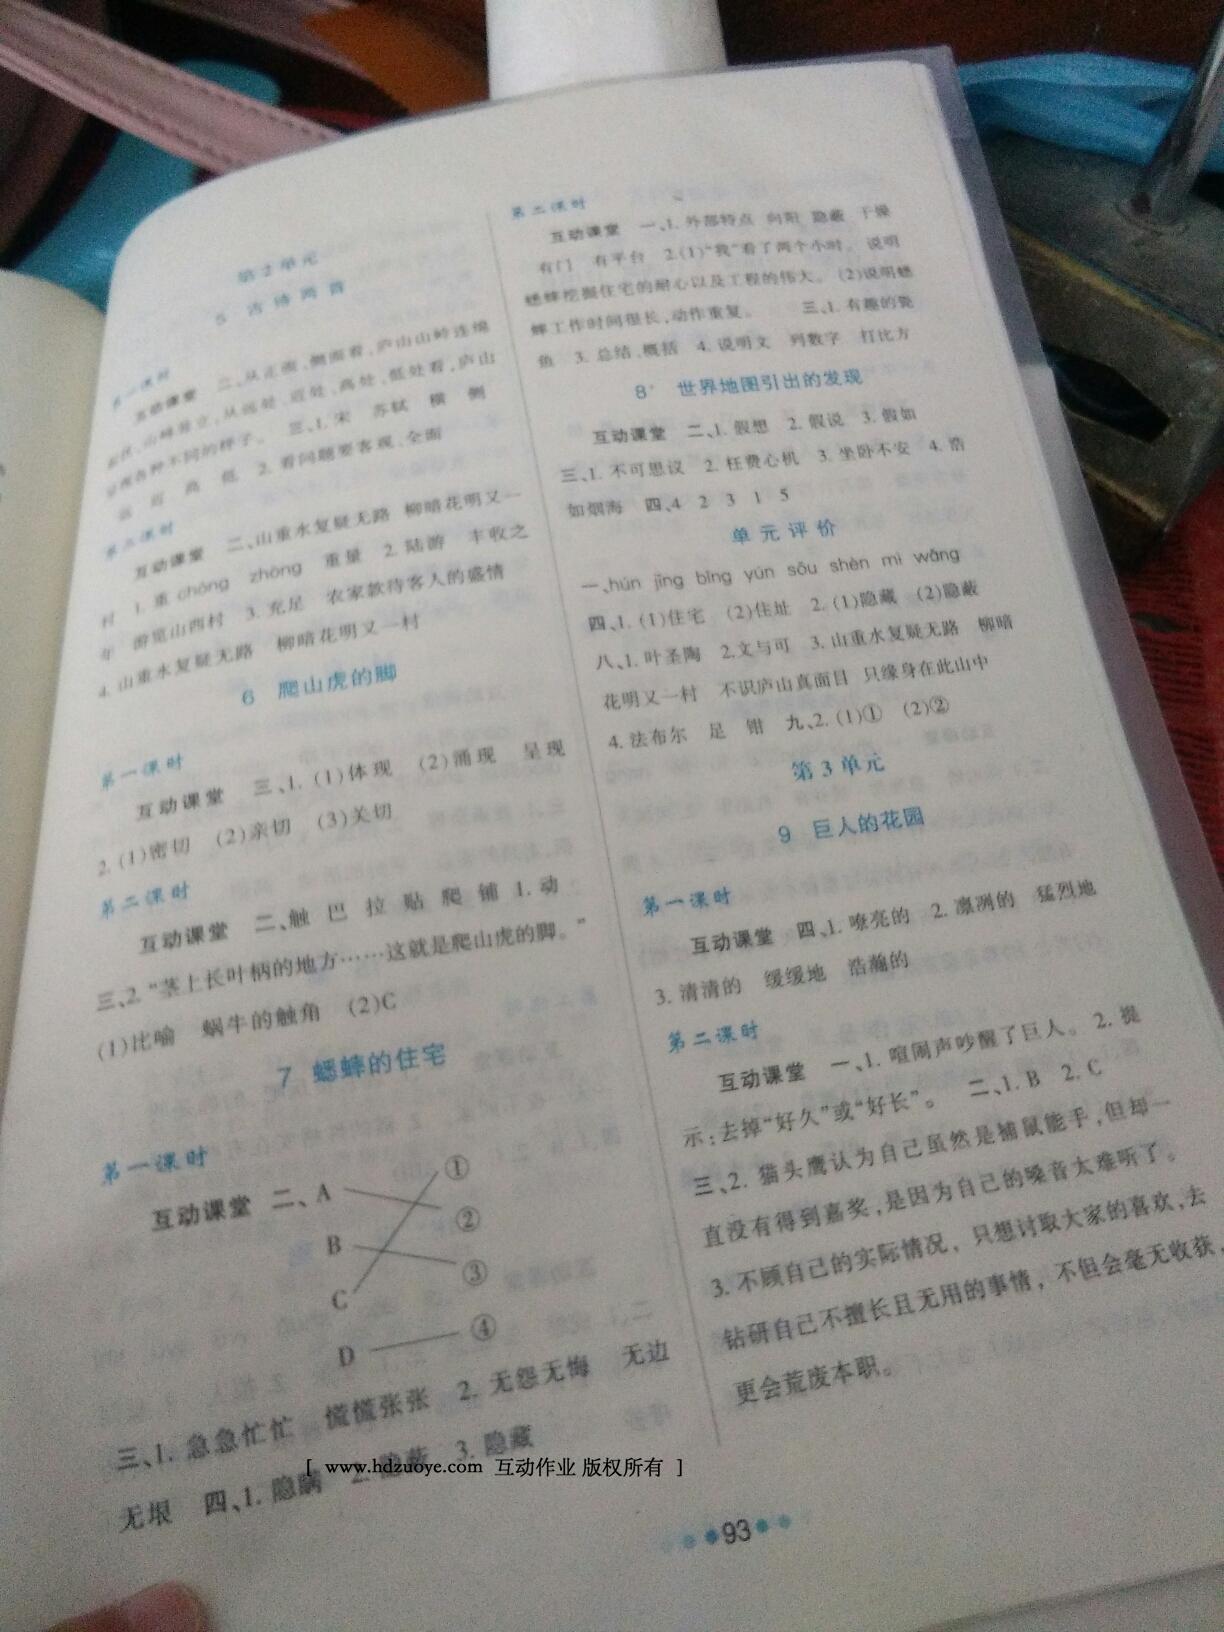 第2单元
5 古诗两首
第一课时
互动课堂 二、从正面、侧面看,庐山山岭连绵
起伏、山峰耸立,从远处、近处、高处、低处看,庐山
呈现各种不同的样子。 三、1. 宋 苏轼 横 侧
远 近 高 低 2. 看问题要客观、全面
第二课时
互动课堂 二、山重水复疑无路 柳暗花明又一
村 1. 重 chóng zhòng 重量 2. 陆游 丰收之
年 游览山西村 3. 充足 农家款待客人的盛情
4. 山重水复疑无路 柳暗花明又一村
6 爬山虎的脚
第一课时
互动课堂 三、1. (1)体现 (2)涌现 呈现
2. (1)密切 (2)亲切 (3)关切
第二课时
互动课堂 二、触 巴 拉 贴 爬 铺 1. 动
三、2. “茎上长叶柄的地方……这就是爬山虎的脚。”
(1)比喻 蜗牛的触角 (2)C
7 蟋蟀的住宅
第一课时
互动课堂 二、A ①
B ②
C ③
D ④
三、1. 急急忙忙 慌慌张张 2. 无怨无悔 无边
无垠 四、1. 隐瞒 2. 隐蔽 3. 隐藏
第二课时
互动课堂 一、1. 外部特点 向阳 隐蔽 干燥
有门 有平台 2. (1)“我”看了两个小时。 说明
蟋蟀挖掘住宅的耐心以及工程的伟大。 (2)说明蟋
蟀工作时间很长,动作重复。 三、1. 有趣的瓮
鱼 3. 总结、概括 4. 说明文 列数字 打比方
8* 世界地图引出的发现
互动课堂 二、1. 假想 2. 假说 3. 假如
三、1. 不可思议 2. 枉费心机 3. 坐卧不安 4. 浩
如烟海 四、4 2 3 1 5
单元评价
一、hún jīng bīng yún sǒu shèn mì wǎng
四、1. (1)住宅 (2)住址 2. (1)隐藏 (2)隐蔽
八、1. 叶圣陶 2.文与可 3. 山重水复疑无路 柳暗
花明又一村 不识庐山真面目 只缘身在此山中
4. 法布尔 足 钳 九、2. (1)① (2)②
第3单元
9 巨人的花园
第一课时
互动课堂 四、1. 嘹亮的 2. 凛冽的 猛烈地
3. 清清的 缓缓地 浩瀚的
第二课时
互动课堂 一、1. 喧闹声吵醒了巨人。 2. 提
示:去掉“好久”或“好长”。 二、1. B 2. C
三、2. 猫头鹰认为自己虽然是捕鼠能手,但却一
直没有得到嘉奖,是因为自己的嗓音太难听了。
3. 不顾自己的实际情况，只想讨取大家的喜欢,去
钻研自己不擅长且无用的事情，不但会毫无收获,
更会荒废本职。
[ www.hdzuoye.com 互动作业 版权所有 ]
93